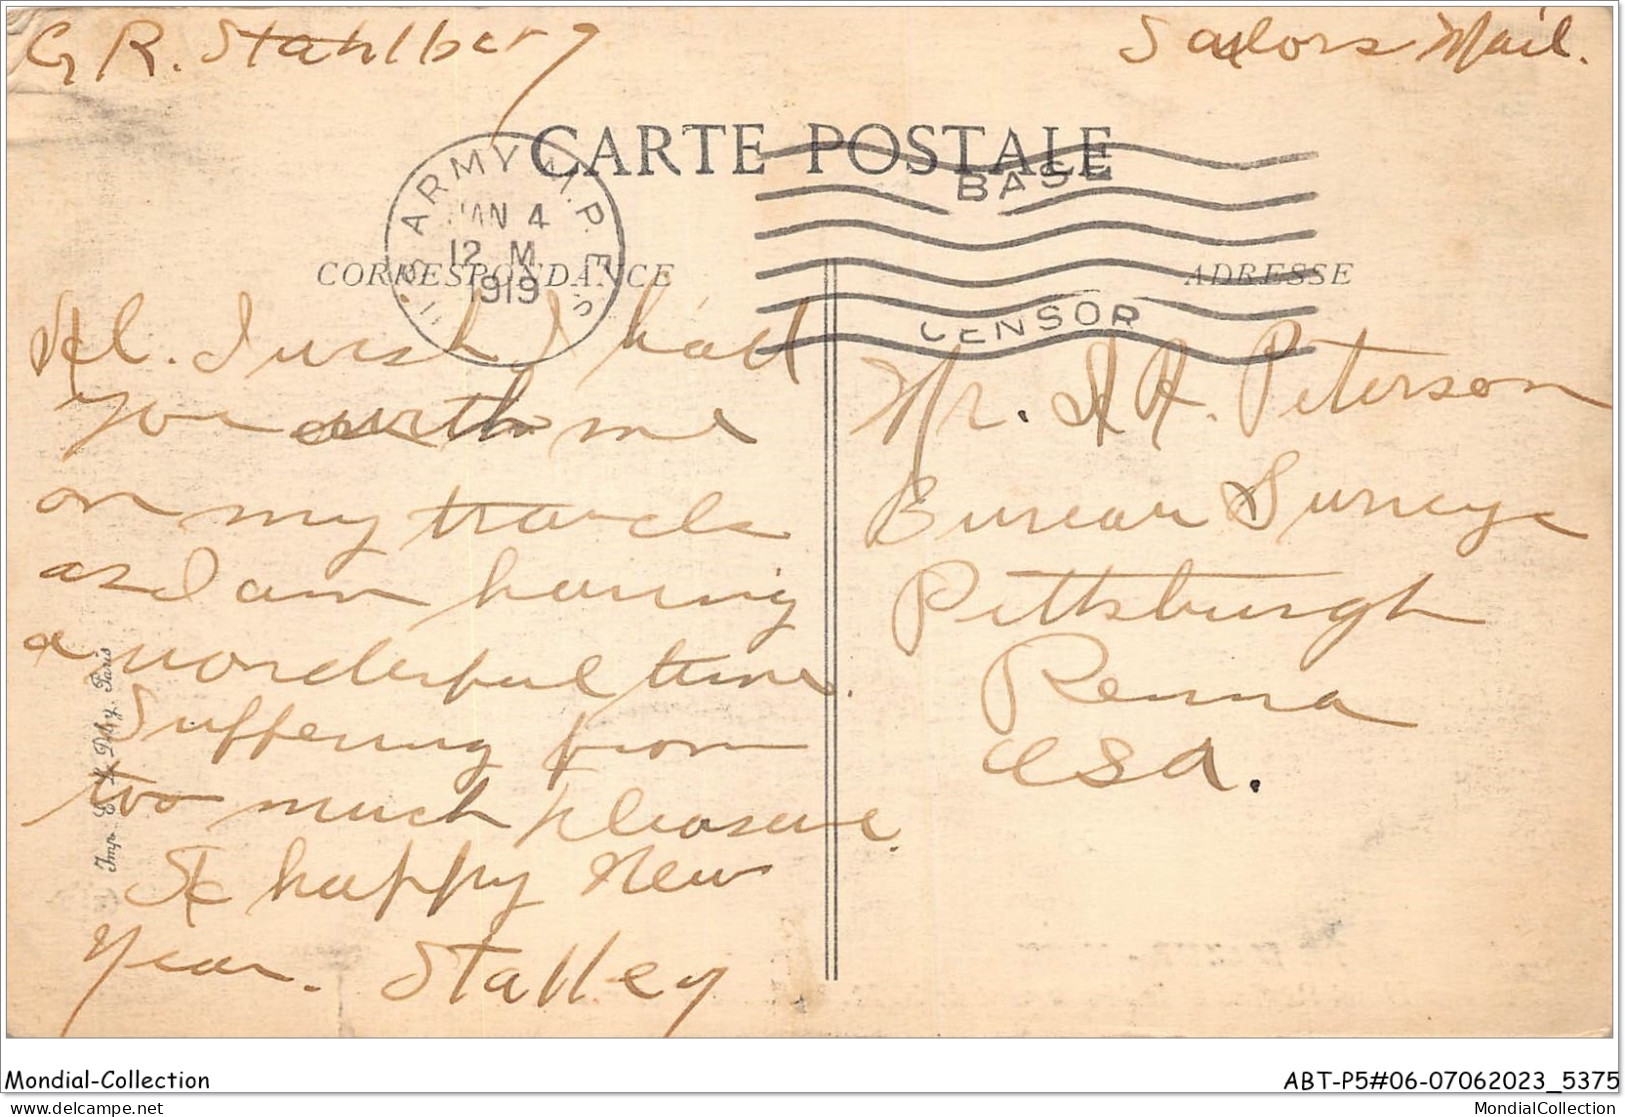 G R. Stahlberg
Sailors Mail.
CARTE POSTALE
U.S. ARMY M.P.E.S.
JAN 4
12 M
1919
BASE
CENSOR
CORRESPONDANCE
ADRESSE
I wish I had
you with me
on my travels
as I am having
a wonderful time.
Suffering from
too much pleasure.
A happy New
Year. Stalley
Mr. A. Peterson
Bureau Surveys
Pittsburgh
Penna
USA.
Imp. Paris
Mondial-Collection
ABT-P5#06-07062023_5375
www.delcampe.net
MondialCollection